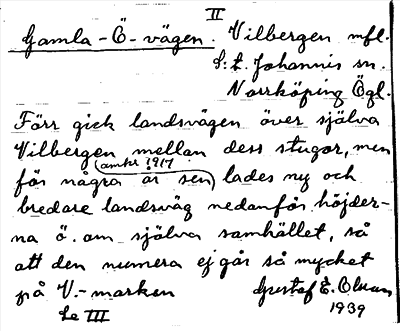 II
Gamla-Ö-vägen. Vilbergen mfl.
S:t. Johannis sn.
Norrköping Ögl.
Förr gick landsvägen över själva
Vilbergen mellan dess stugor, men
(omkr 1917)
för några år sen lades ny och
bredare landsväg nedanför höjder-
na ö. om själva samhället, så
att den numera ej går så mycket
på V.-marken Gustaf E. Olsson
Se III 1939